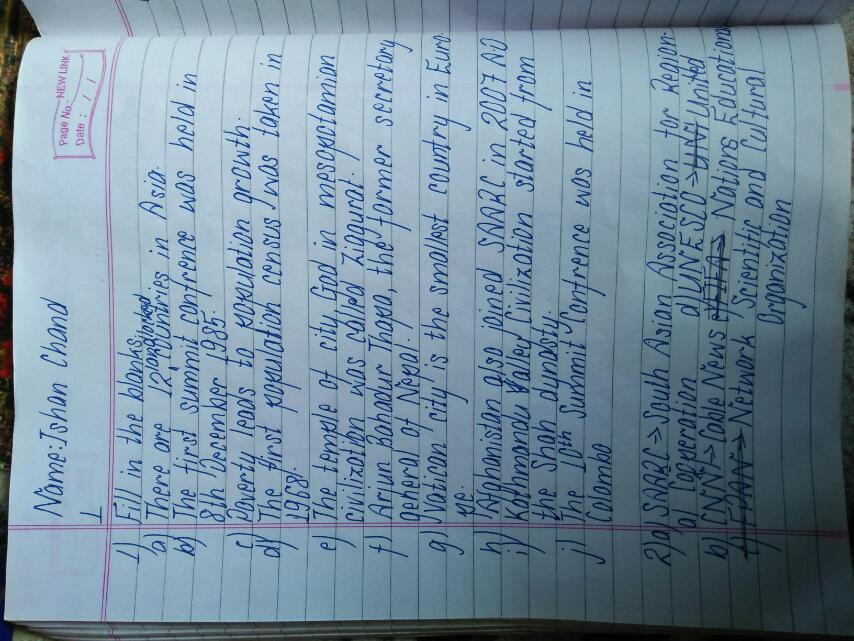 NEW LINK
Page No.:
Date: / /
Name: Ishan Chand
1) Fill in the blanks.
landlocked
a) There are 12 countries in Asia.
b) The first summit confrence was held in
8th December 1985.
c) Poverty leads to population growth.
d) The first population census was taken in
1968.
e) The temple of city God in mesopotamian
civilization was called Ziggurat.
f) Arjun Bahadur Thapa, the former secretary
general of Nepal.
g) Vatican city is the smallest country in Euro-
pe.
h) Afghanistan also joined SAARC in 2007 A.D
i) Kathmandu Valley Civilization started from
the Shah dynasty.
j) The 10th Summit Confrence was held in
Colombo
2) a) SAARC => South Asian Association for Region-
al Cooperation d) UNESCO => UNI United
b) CNN => Cable News Nations Educational
Network Scientific and Cultural
Organization